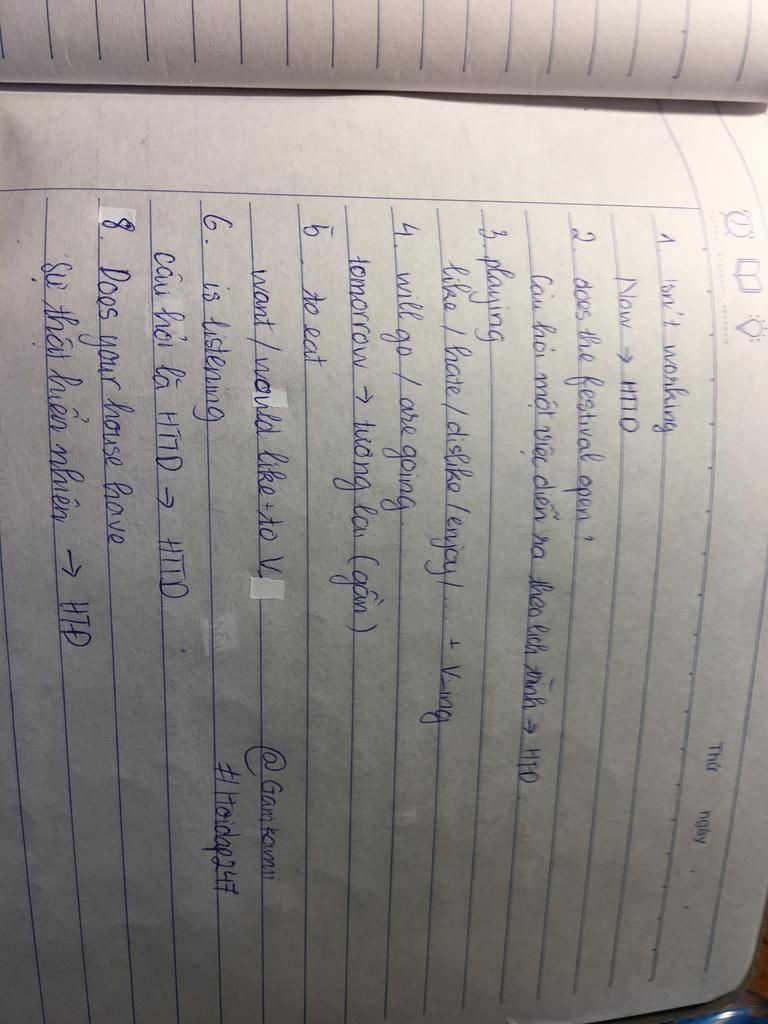 Thứ ngày
1. isn't working
Now → HTTD
2. does the festival open?
Câu hỏi một việc diễn ra theo lịch trình → HTĐ
3. playing
like / hate / dislike / enjoy / ... + V-ing
4. will go / are going
tomorrow → tương lai (gần)
5. to eat
want / would like + to V
@Gamkamii
6. is listening
#Hoidap247
câu hỏi là HTTD → HTTD
8. Does your house have
Sự thật hiển nhiên → HTĐ